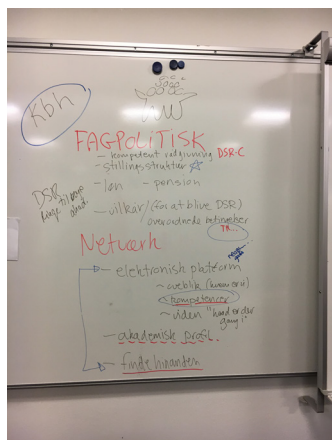 Kbh
FAGPOLITISK
– kompetent rådgivning DSR-C
– stillingsstruktur
– løn – pension
DSR
tilbage
– vilkår/(for at blive DSR)
overordnede betingelser
TR...
Netværk
– elektronisk platform
~ overblik (hvem er vi)
~ kompetencer
~ viden "hvad er der gang i"
– akademisk profil.
– finde hinanden